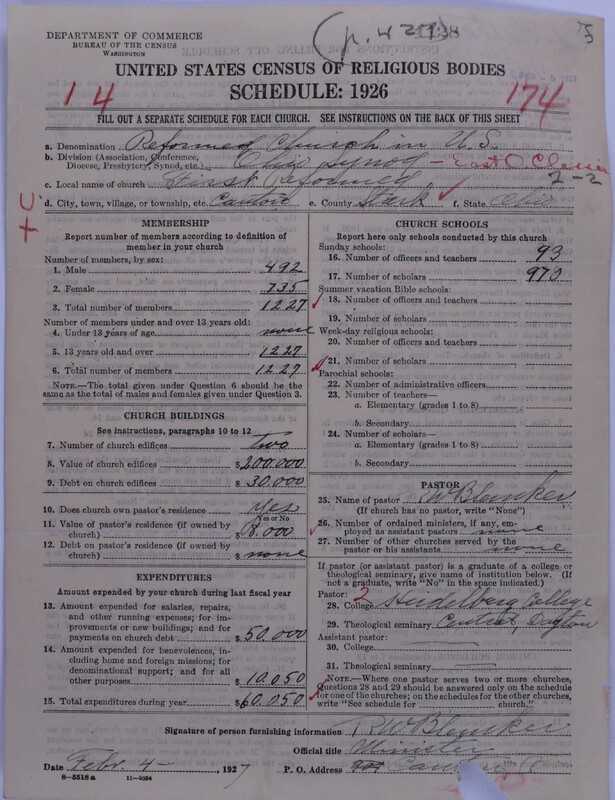 DEPARTMENT OF COMMERCE
BUREAU OF THE CENSUS
WASHINGTON
UNITED STATES CENSUS OF RELIGIOUS BODIES
SCHEDULE: 1926
14
174
FILL OUT A SEPARATE SCHEDULE FOR EACH CHURCH. SEE INSTRUCTIONS ON THE BACK OF THIS SHEET
a. Denomination Reformed Church in U.S.
b. Division (Association, Conference,
Diocese, Presbytery, Synod, etc.) Ohio Synod – East O. Classis
2-2
c. Local name of church First Reformed
d. City, town, village, or township, etc. Canton e. County Stark f. State Ohio
MEMBERSHIP
Report number of members according to definition of
member in your church
Number of members, by sex:
1. Male 492
2. Female 735
3. Total number of members 1227
Number of members under and over 13 years old:
4. Under 13 years of age none
5. 13 years old and over 1227
6. Total number of members 1227
NOTE.—The total given under Question 6 should be the
same as the total of males and females given under Question 3.
CHURCH BUILDINGS
See instructions, paragraphs 10 to 12
7. Number of church edifices two
8. Value of church edifices $200.000
9. Debt on church edifices $30.000
10. Does church own pastor's residence Yes
Yes or No
11. Value of pastor's residence (if owned by
church) $8.000
12. Debt on pastor's residence (if owned by
church) $none
EXPENDITURES
Amount expended by your church during last fiscal year
13. Amount expended for salaries, repairs,
and other running expenses; for im-
provements or new buildings; and for
payments on church debt $50.000
14. Amount expended for benevolences, in-
cluding home and foreign missions; for
denominational support; and for all
other purposes $10.050
15. Total expenditures during year $60.050
CHURCH SCHOOLS
Report here only schools conducted by this church
Sunday schools:
16. Number of officers and teachers 93
17. Number of scholars 970
Summer vacation Bible schools:
18. Number of officers and teachers
19. Number of scholars
Week-day religious schools:
20. Number of officers and teachers
21. Number of scholars
Parochial schools:
22. Number of administrative officers
23. Number of teachers—
a. Elementary (grades 1 to 8)
b. Secondary
24. Number of scholars—
a. Elementary (grades 1 to 8)
b. Secondary
PASTOR
25. Name of pastor R W Blemker
(If church has no pastor, write "None")
26. Number of ordained ministers, if any, em-
ployed as assistant pastors none
27. Number of other churches served by the
pastor or his assistants none
If pastor (or assistant pastor) is a graduate of a college or
theological seminary, give name of institution below. (If
not a graduate, write "No" in the space indicated.)
Pastor: 2
28. College Heidelberg College
29. Theological seminary Central, Dayton
Assistant pastor:
30. College
31. Theological seminary
NOTE.—Where one pastor serves two or more churches,
Questions 28 and 29 should be answered only on the schedule
for one of the churches; on the schedules for the other churches,
write "See schedule for church."
Signature of person furnishing information R W Blemker
Official title Minister
Date Febr. 4 - , 1927 P. O. Address Canton
8—5518a 11—9324